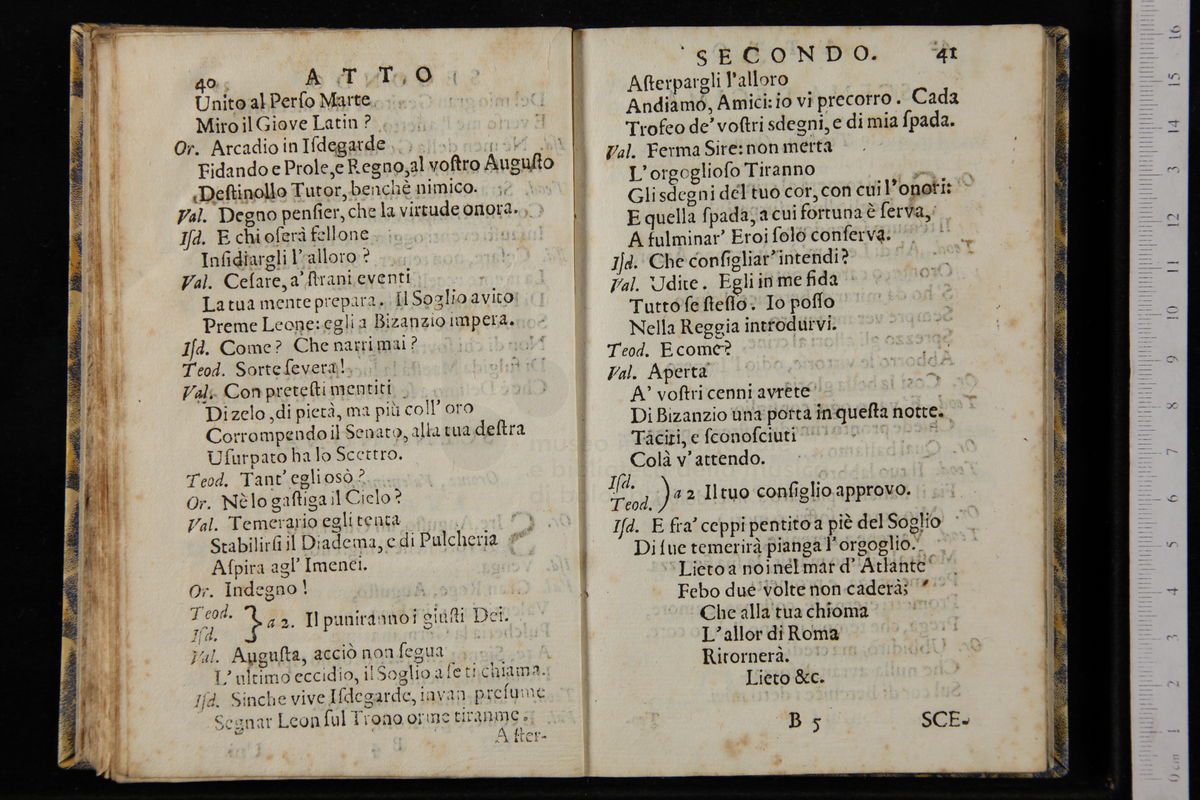 40 ATTO
Unito al Perſo Marte
Miro il Giove Latin ?
Or. Arcadio in Iſdegarde
Fidando e Prole,e Regno,al voſtro Auguſto
Deſtinollo Tutor, benchè nimico.
Val. Degno penſier, che la virtude onora.
Iſd. E chi oſerà fellone
Inſidiargli l'alloro ?
Val. Ceſare, a' ſtrani eventi
La tua mente prepara. Il Soglio avito
Preme Leone: egli a Bizanzio impera.
Iſd. Come? Che narri mai ?
Teod. Sorte ſevera!
Val. Con preteſti mentiti
Di zelo ,di pietà, ma più coll' oro
Corrompendo il Senato, alla tua deſtra
Uſurpato ha lo Scettro.
Teod. Tant' egli osò ?
Or. Nè lo gaſtiga il Cielo ?
Val. Temerario egli tenta
Stabilirſi il Diadema, e di Pulcheria
Aſpira agl' Imenei.
Or. Indegno !
Teod.
Iſd. } a 2. Il puniranno i giuſti Dei.
Val. Auguſta, acciò non ſegua
L'ultimo eccidio, il Soglio a ſe ti chiama.
Iſd. Sinche vive Iſdegarde, invan preſume
Segnar Leon ſul Trono orme tiranne.
Aſter-
SECONDO. 41
Aſterpargli l'alloro
Andiamo, Amici: io vi precorro . Cada
Trofeo de' voſtri sdegni, e di mia ſpada.
Val. Ferma Sire: non merta
L'orgoglioſo Tiranno
Gli sdegni del tuo cor, con cui l'onori:
E quella ſpada, a cui fortuna è ſerva,
A fulminar' Eroi ſolo conſerva.
Iſd. Che conſigliar' intendi?
Val. Udite . Egli in me fida
Tutto ſe ſteſſo. Io poſſo
Nella Reggia introdurvi.
Teod. E come?
Val. Aperta
A' voſtri cenni avrete
Di Bizanzio una porta in queſta notte.
Taciti, e ſconoſciuti
Colà v'attendo.
Iſd.
Teod. ) a 2 Il tuo conſiglio approvo.
Iſd. E fra' ceppi pentito a piè del Soglio
Di ſue temerità pianga l'orgoglio.
Lieto a noi nel mar d' Atlante
Febo due volte non caderà;
Che alla tua chioma
L'allor di Roma
Ritornerà.
Lieto &c.
B 5 SCE-